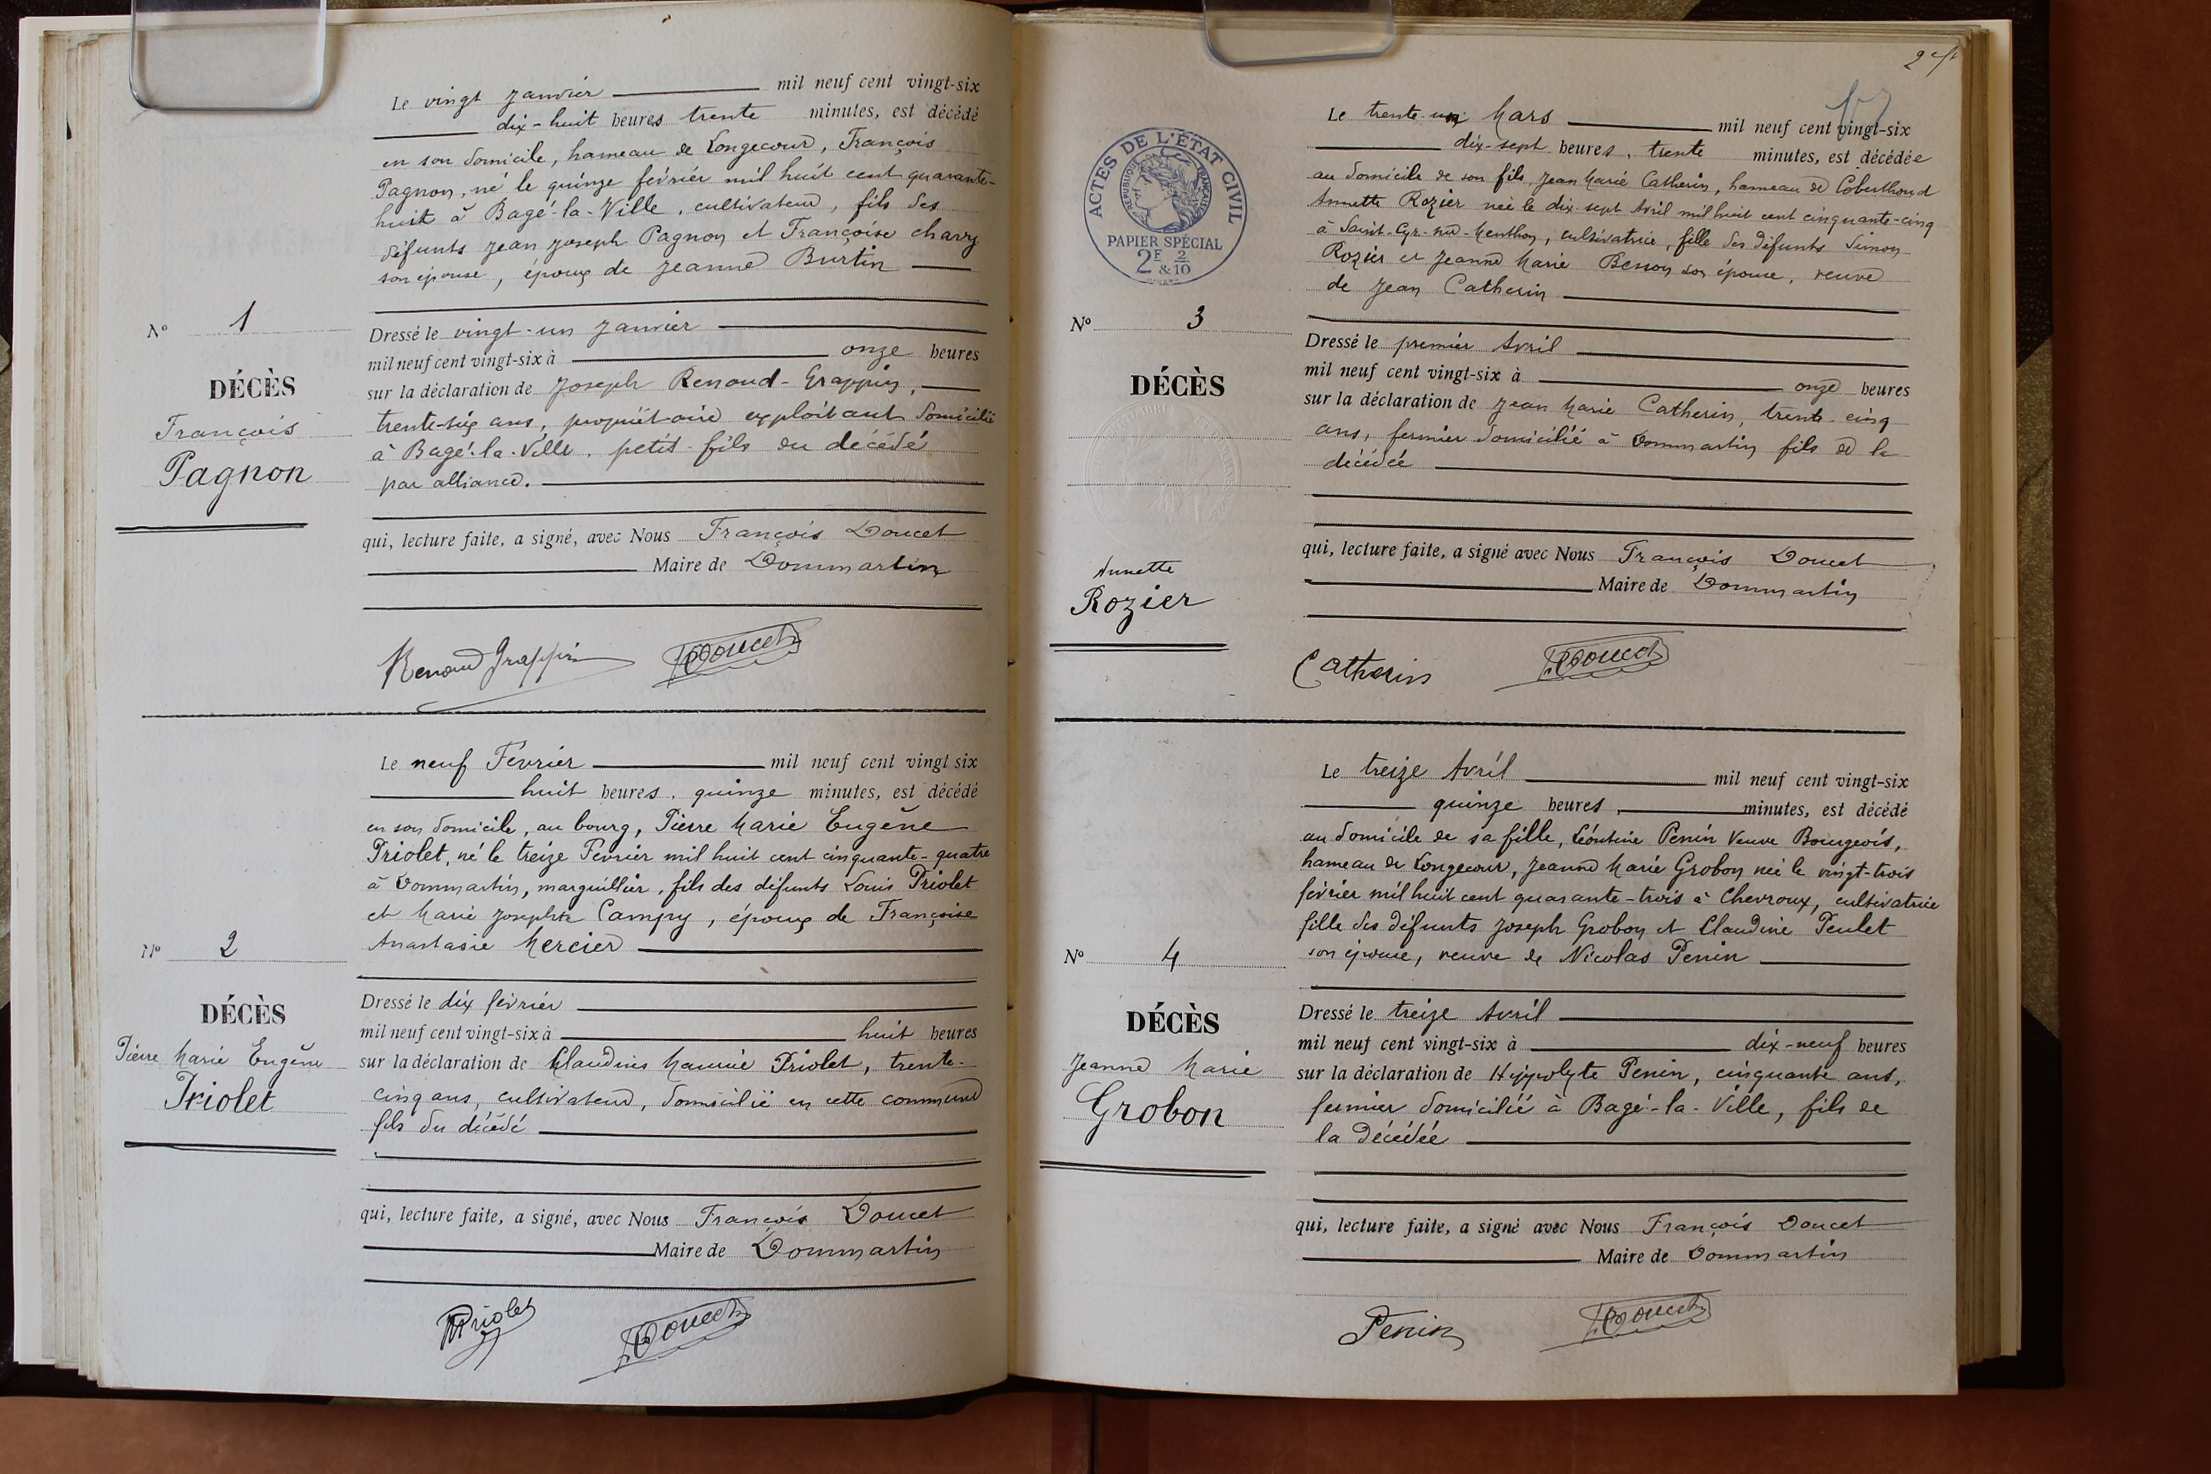 Le vingt Janvier mil neuf cent vingt-six
dix-huit heures trente minutes, est décédé
en son domicile, hameau de Longecour, François
Pagnon, né le quinze février mil huit cent quarante-
huit à Bagé-la-Ville, cultivateur, fils des
défunts Jean Joseph Pagnon et Françoise Charvy
son épouse, époux de Jeanne Burtin
N° 1
DÉCÈS
François
Pagnon
Dressé le vingt-un Janvier
mil neuf cent vingt-six à onze heures
sur la déclaration de Joseph Renoud-Grappin,
trente-six ans, propriétaire exploitant domicilié
à Bagé-la-Ville, petit-fils du décédé
par alliance.
qui, lecture faite, a signé, avec Nous François Doucet
Maire de Dommartin
Renoud Grappin Doucet
Le neuf Février mil neuf cent vingt six
huit heures, quinze minutes, est décédé
en son domicile, au bourg, Pierre Marie Eugène
Priolet, né le treize Février mil huit cent cinquante-quatre
à Dommartin, marguillier, fils des défunts Louis Priolet
et Marie Josephte Campy, époux de Françoise
Anastasie Mercier
N° 2
DÉCÈS
Pierre Marie Eugène
Priolet
Dressé le dix février
mil neuf cent vingt-six à huit heures
sur la déclaration de Claudius Maurice Priolet, trente-
cinq ans, cultivateur, domicilié en cette commune
fils du décédé
qui, lecture faite, a signé, avec Nous François Doucet
Maire de Dommartin
Priolet Doucet
ACTES DE L'ÉTAT CIVIL
RÉPUBLIQUE FRANÇAISE
PAPIER SPÉCIAL
2E 2/10
&
Le trente-un Mars mil neuf cent vingt-six
dix-sept heures, trente minutes, est décédée
au domicile de son fils Jean Marie Catherin, hameau de Coberthoud
Annette Rozier née le dix-sept Avril mil huit cent cinquante-cinq
à Saint-Cyr-sur-Menthon, cultivatrice, fille des défunts Simon
Rozier et Jeanne Marie Besson son épouse, veuve
de Jean Catherin
N° 3
DÉCÈS
Annette
Rozier
Dressé le premier Avril
mil neuf cent vingt-six à onze heures
sur la déclaration de Jean Marie Catherin, trente-cinq
ans, fermier domicilié à Dommartin fils de la
décédée
qui, lecture faite, a signé avec Nous François Doucet
Maire de Dommartin
Catherin Doucet
Le treize Avril mil neuf cent vingt-six
quinze heures, minutes, est décédé
au domicile de sa fille, Léontine Penin Veuve Bourgeois,
hameau de Longecour, Jeanne Marie Grobon née le vingt-trois
février mil huit cent quarante-trois à Chevroux, cultivatrice
fille des défunts Joseph Grobon et Claudine Peulet
son épouse, veuve de Nicolas Penin
N° 4
DÉCÈS
Jeanne Marie
Grobon
Dressé le treize Avril
mil neuf cent vingt-six à dix-neuf heures
sur la déclaration de Hippolyte Penin, cinquante ans,
fermier domicilié à Bagé-la-Ville, fils de
la décédée
qui, lecture faite, a signé avec Nous François Doucet
Maire de Dommartin
Penin Doucet